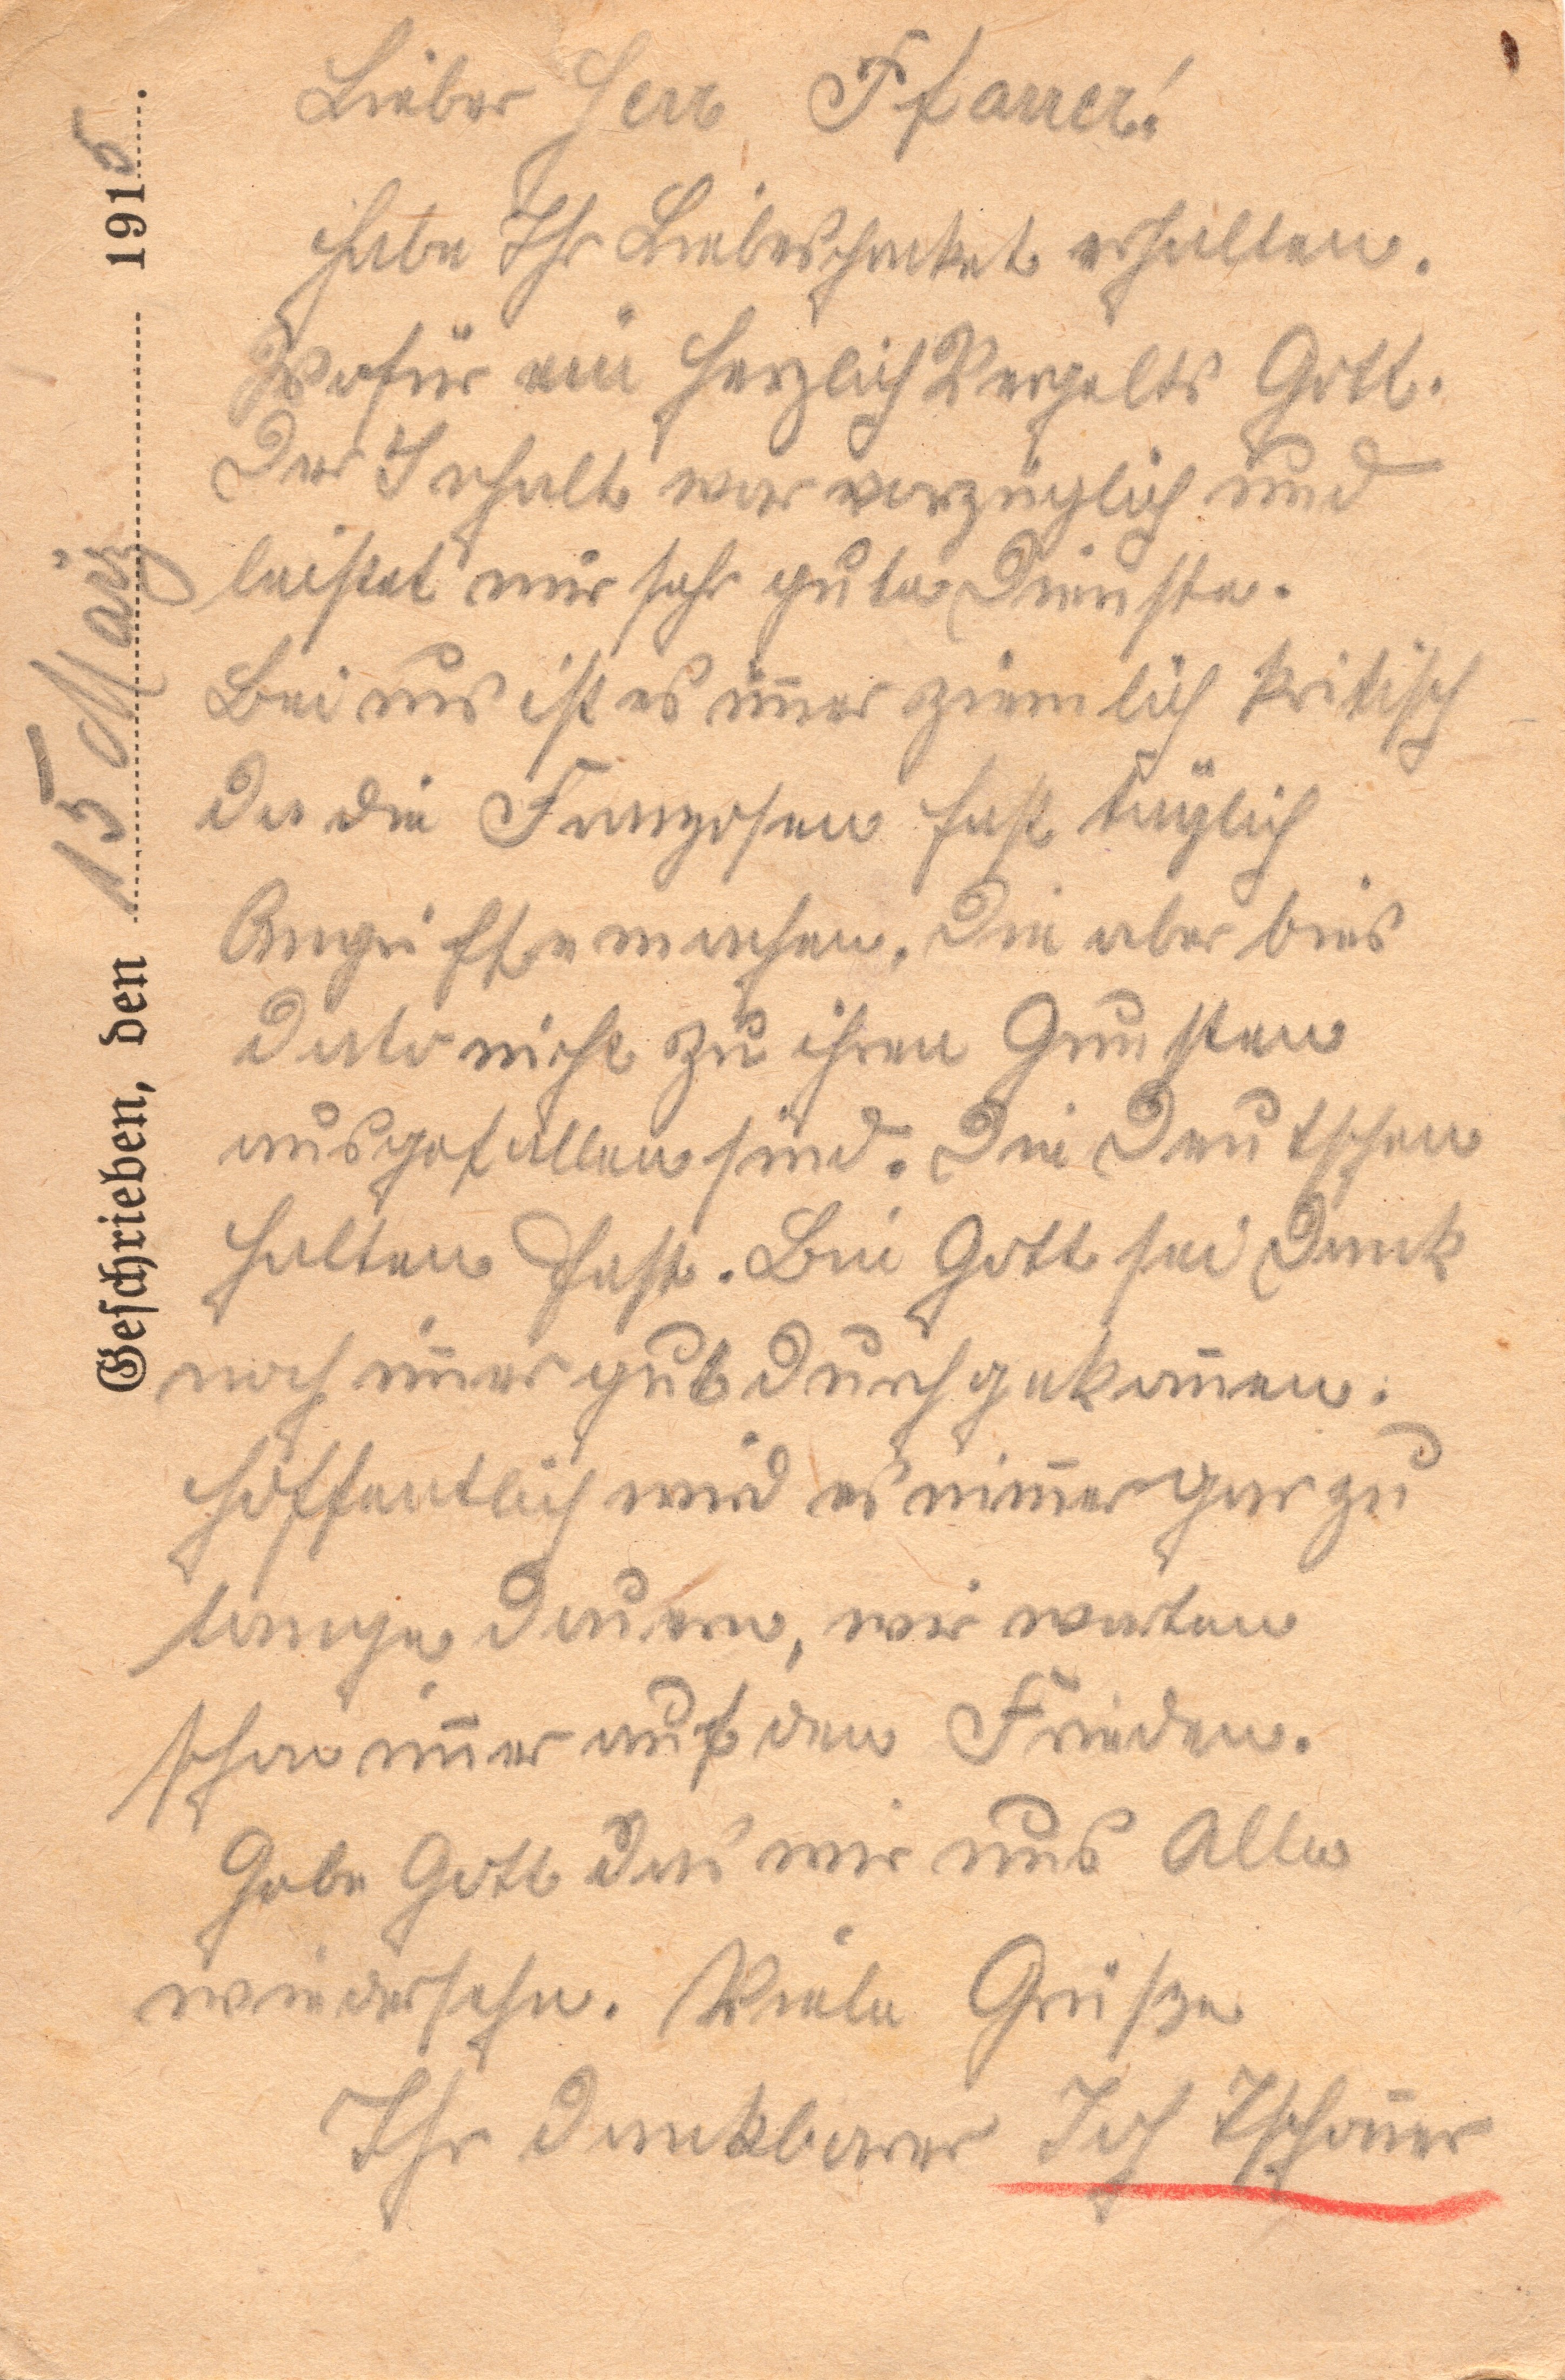 Geschrieben, den 15 März 1915.
Lieber Herr Pfarrer!
Habe Ihr Liebespaket erhalten.
Wofür ein herzlich Vergelts Gott.
Der Inhalt war vorzüglich und
leistet mir sehr gute Dienste.
Bei uns ist es im̅er ziemlich kritisch
da die Franzosen fast täglich
Angriffe machen, die aber bies
dato nicht zu ihren Gunsten
ausgefallen sind. Die Deutschen
halten fest. Bin Gott sei Dank
noch im̅er gut durchgekom̅en.
Hoffentlich wird es nim̅er gar zu
lange dauern, wir warten
schon im̅er auf den Frieden.
Gebe Gott das wir uns Alle
wiedersehn. Viele Grüße
Ihr dankbarer